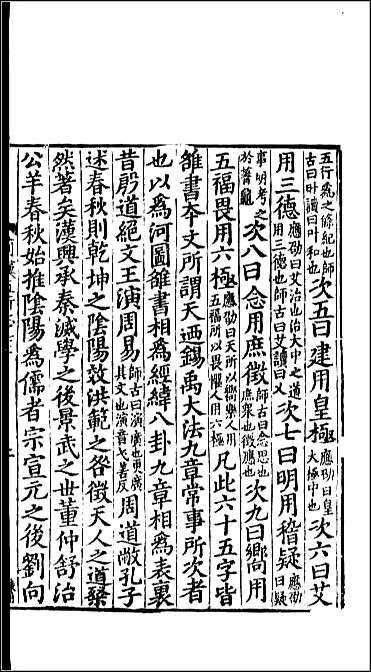 五行爲之條紀也師古曰旪讀曰叶和也次五曰建用皇極應劭曰皇大極中也次六曰艾
用三德應劭曰艾治也治大中之道用三德也師古曰艾讀曰乂次七曰明用稽疑應劭曰疑
事明考之於蓍龜次八曰念用庶徵師古曰念思也庶衆也徵應也次九曰嚮用
五福畏用六極應劭曰天所以嚮樂人用五福所以畏懼人用六極凡此六十五字皆
雒書本文所謂天迺錫禹大法九章常事所次者
也以爲河圖雒書相爲經緯八卦九章相爲表裏
昔殷道絶文王演周易師古曰演廣也更廣其文也演音弋善反周道敝孔子
述春秋則乾坤之陰陽效洪範之咎徵天人之道粲
然著矣漢興承秦滅學之後景武之世董仲舒治
公羊春秋始推陰陽爲儒者宗宣元之後劉向